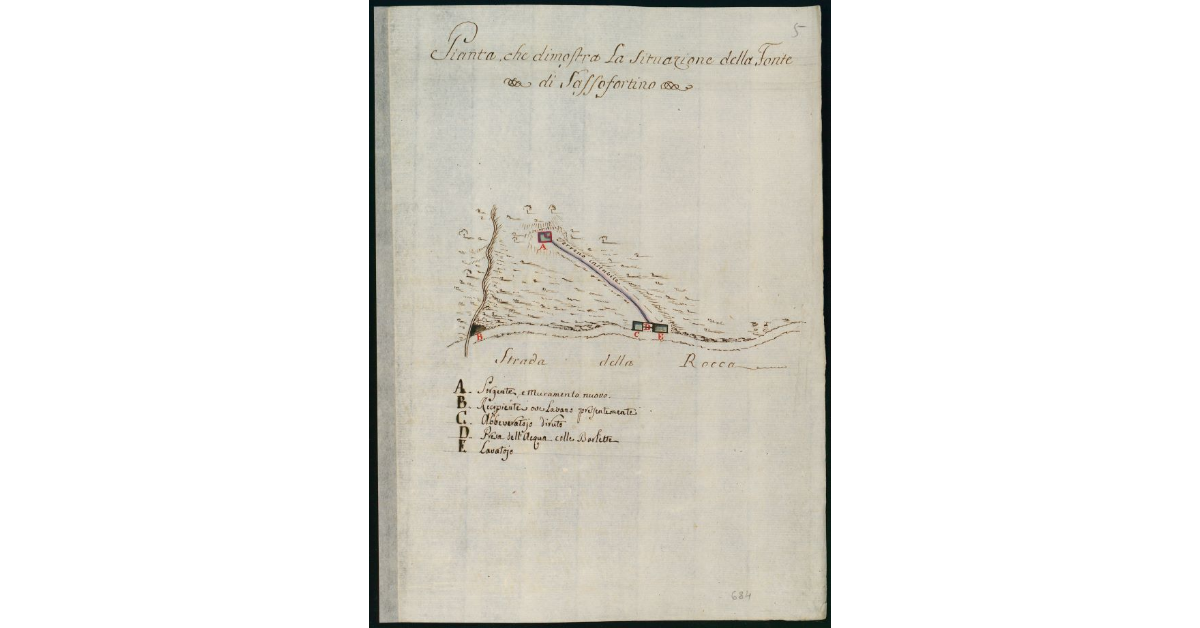 5
Pianta, che dimostra La Situazione della Fonte
di Sassofortino
A
Terreno instabile
B
C
D
E
Strada della Rocca
A. Sorgente, e Muramento nuovo.
B. Recipiente ove Lavano presentemente
C. Abbeveratojo diruto
D. Presa dell'Acqua colle Barlette
E. Lavatojo
684